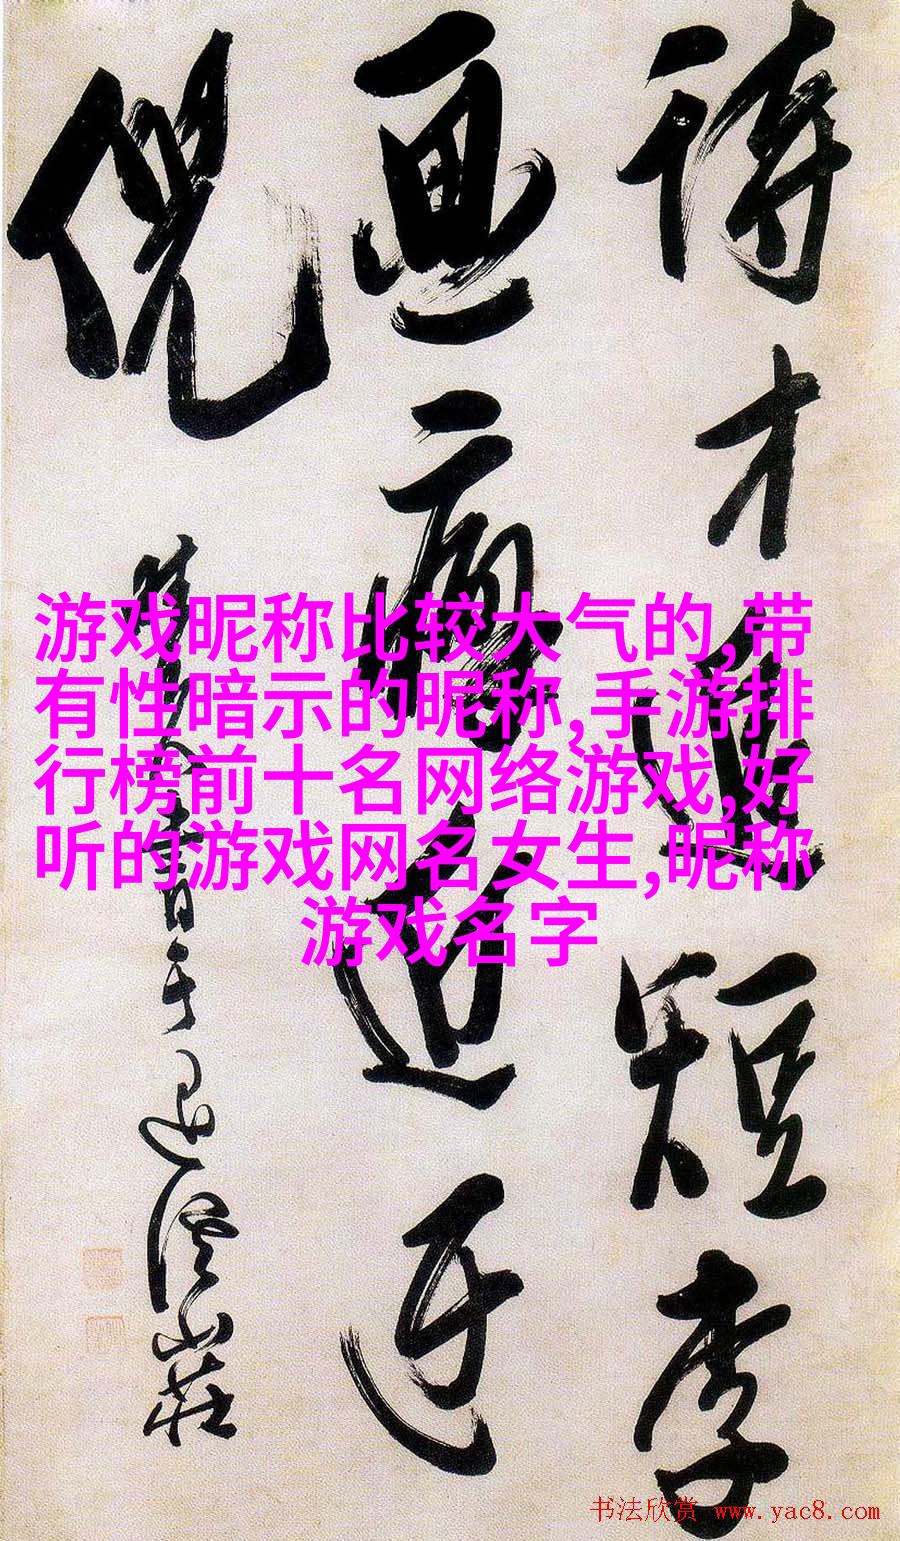 詩才追短李
画癖近迂
倪
山莊
游戏昵称比较大气的,带
有性暗示的昵称,手游排
行榜前十名网络游戏,好
听的游戏网名女生,昵称
游戏名字
书法欣赏 www.yac8.com